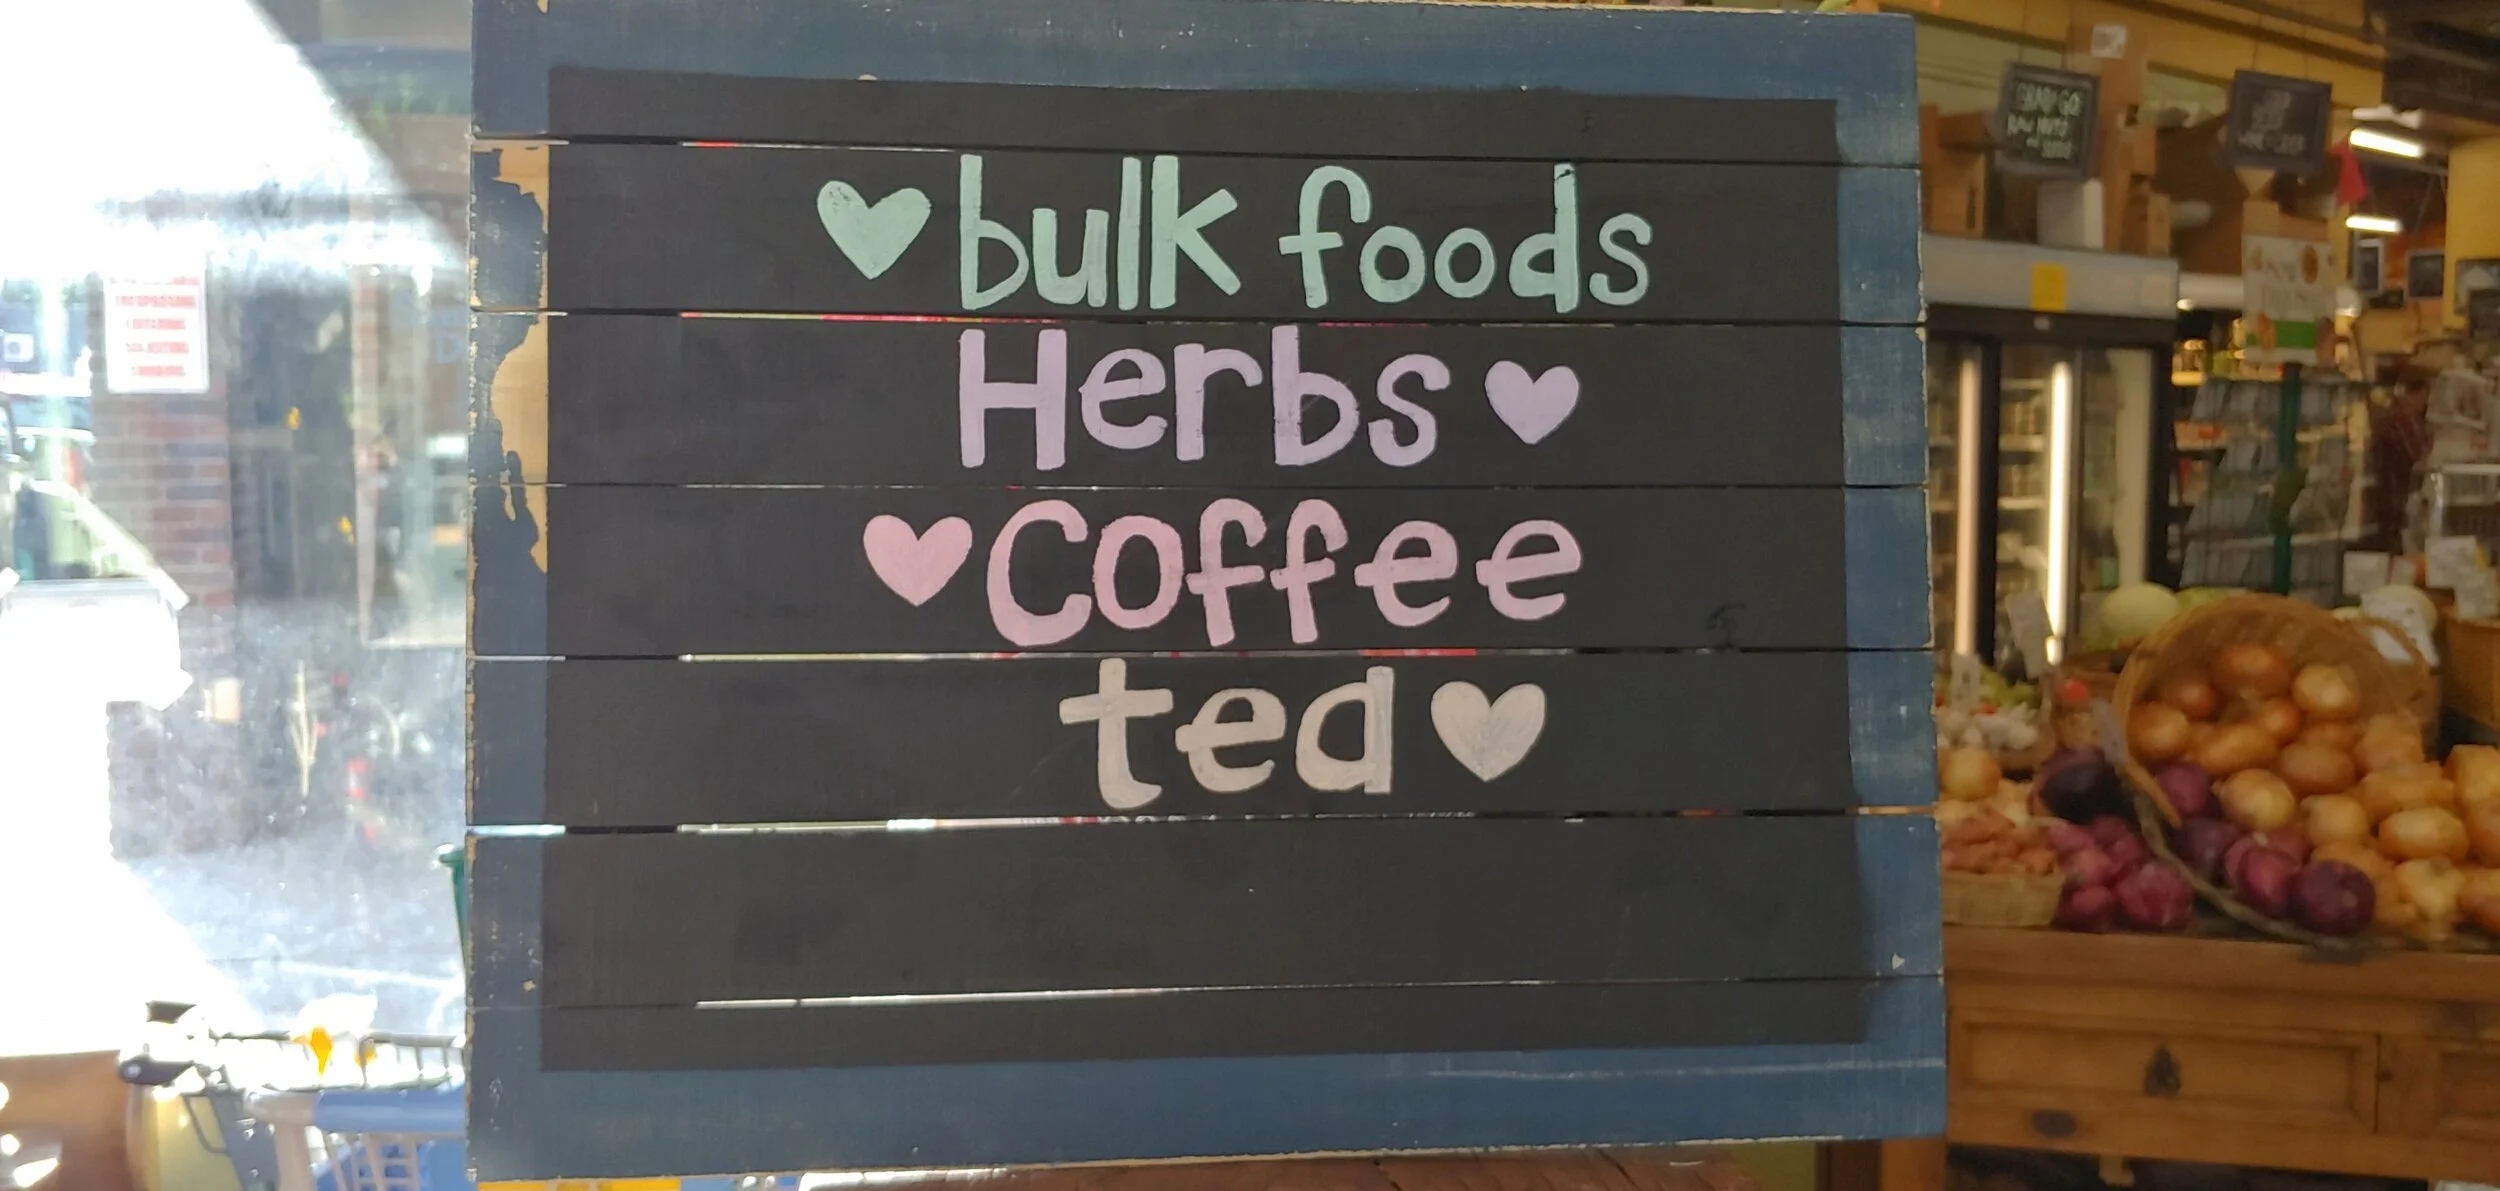 bulk foods
Herbs
Coffee
tea